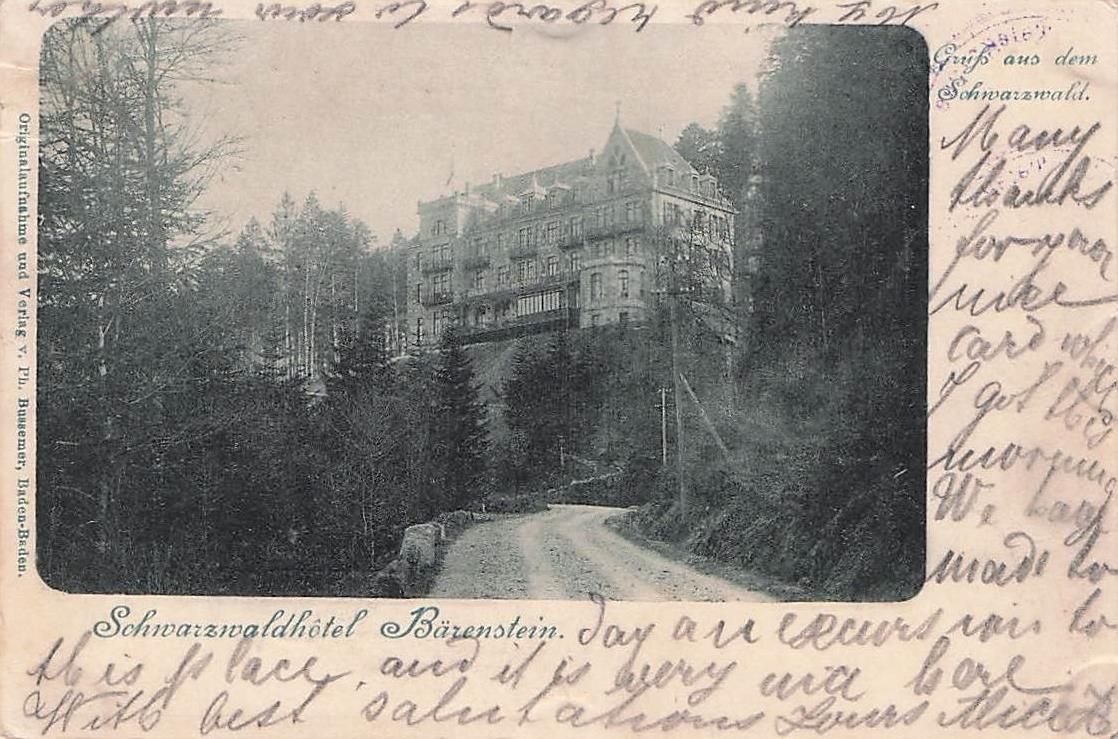 My kind regards to your mother
Gruß aus dem
Schwarzwald.
Many
thanks
for your
nice
card which
I got this
morning
We have
made to
day an excursion to
this place, and it is very nice here
With best salutations Yours Alice
Schwarzwaldhôtel Bärenstein.
Originalaufnahme und Verlag v. Ph. Bussemer, Baden-Baden.